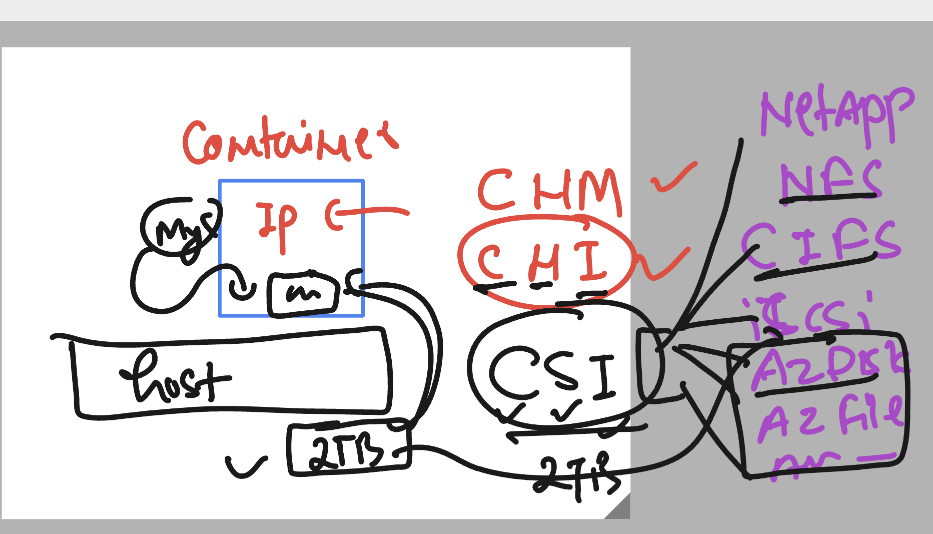 Container
Ip
m
host
2TB
CHM
CHI
CSI
2TB
NetApp
NFS
CIFS
iscsi
AzDisk
Az File